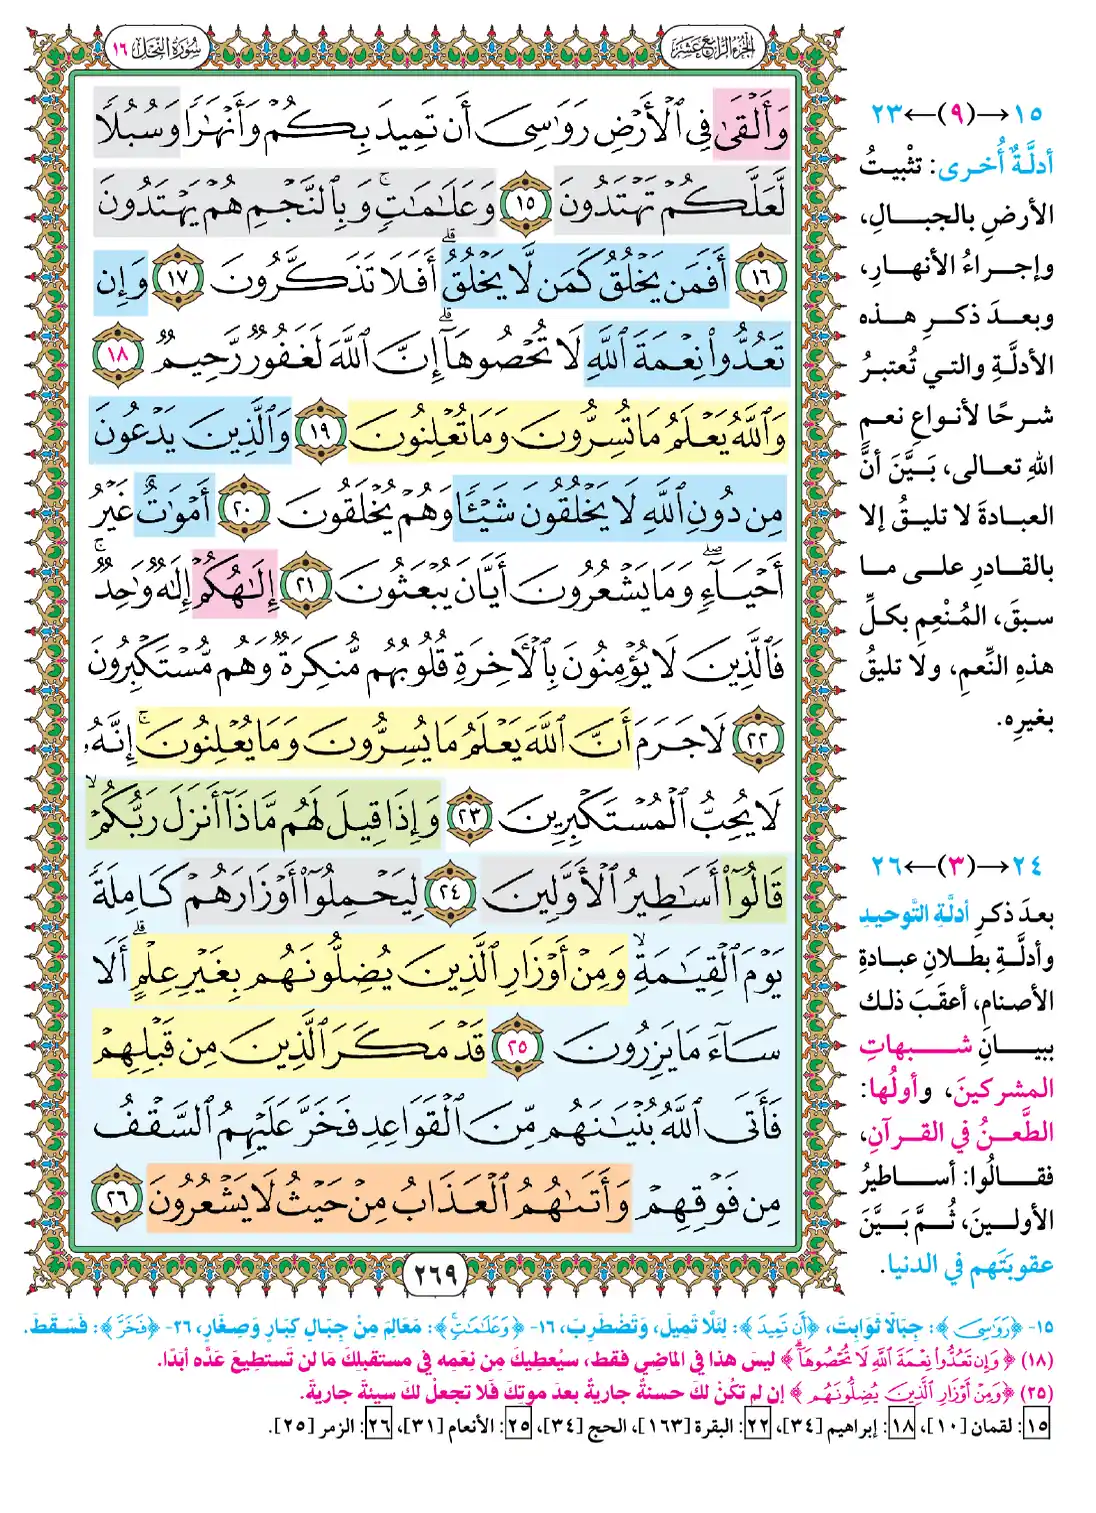 الجزء الرابع عشر
سورة النحل ١٦
وَأَلْقَىٰ فِي ٱلْأَرْضِ رَوَٰسِيَ أَن تَمِيدَ بِكُمْ وَأَنْهَٰرًا وَسُبُلًا
لَّعَلَّكُمْ تَهْتَدُونَ ١٥ وَعَلَٰمَٰتٍۚ وَبِٱلنَّجْمِ هُمْ يَهْتَدُونَ
١٦ أَفَمَن يَخْلُقُ كَمَن لَّا يَخْلُقُۗ أَفَلَا تَذَكَّرُونَ ١٧ وَإِن
تَعُدُّوا۟ نِعْمَةَ ٱللَّهِ لَا تُحْصُوهَآۗ إِنَّ ٱللَّهَ لَغَفُورٌ رَّحِيمٌ ١٨
وَٱللَّهُ يَعْلَمُ مَا تُسِرُّونَ وَمَا تُعْلِنُونَ ١٩ وَٱلَّذِينَ يَدْعُونَ
مِن دُونِ ٱللَّهِ لَا يَخْلُقُونَ شَيْـًٔا وَهُمْ يُخْلَقُونَ ٢٠ أَمْوَٰتٌ غَيْرُ
أَحْيَآءٍۖ وَمَا يَشْعُرُونَ أَيَّانَ يُبْعَثُونَ ٢١ إِلَٰهُكُمْ إِلَٰهٌ وَٰحِدٌۚ
فَٱلَّذِينَ لَا يُؤْمِنُونَ بِٱلْأَخِرَةِ قُلُوبُهُم مُّنكِرَةٌ وَهُم مُّسْتَكْبِرُونَ
٢٢ لَا جَرَمَ أَنَّ ٱللَّهَ يَعْلَمُ مَا يُسِرُّونَ وَمَا يُعْلِنُونَۚ إِنَّهُۥ
لَا يُحِبُّ ٱلْمُسْتَكْبِرِينَ ٢٣ وَإِذَا قِيلَ لَهُم مَّاذَآ أَنزَلَ رَبُّكُمْۙ
قَالُوٓا۟ أَسَٰطِيرُ ٱلْأَوَّلِينَ ٢٤ لِيَحْمِلُوٓا۟ أَوْزَارَهُمْ كَامِلَةً
يَوْمَ ٱلْقِيَٰمَةِۙ وَمِنْ أَوْزَارِ ٱلَّذِينَ يُضِلُّونَهُم بِغَيْرِ عِلْمٍۗ أَلَا
سَآءَ مَا يَزِرُونَ ٢٥ قَدْ مَكَرَ ٱلَّذِينَ مِن قَبْلِهِمْ
فَأَتَى ٱللَّهُ بُنْيَٰنَهُم مِّنَ ٱلْقَوَاعِدِ فَخَرَّ عَلَيْهِمُ ٱلسَّقْفُ
مِن فَوْقِهِمْ وَأَتَىٰهُمُ ٱلْعَذَابُ مِنْ حَيْثُ لَا يَشْعُرُونَ ٢٦
٢٦٩
١٥→(٩)←٢٣
أدلَّةٌ أُخرى: تثْبيتُ
الأرضِ بالجبالِ،
وإجراءُ الأنهارِ،
وبعدَ ذكرِ هذه
الأدلَّةِ والتي تُعتبرُ
شرحًا لأنواعِ نعمِ
اللهِ تعالى، بَيَّنَ أنَّ
العبادةَ لا تليقُ إلا
بالقادرِ على ما
سبقَ، المُنْعِمِ بكلِّ
هذهِ النِّعمِ، ولا تليقُ
بغيرِه.
٢٤→(٣)←٢٦
بعدَ ذكرِ أدلَّةِ التَّوحيدِ
وأدلَّةِ بطلانِ عبادةِ
الأصنامِ، أعقبَ ذلك
ببيانِ شبهاتِ
المشركينَ، وأولُها:
الطَّعنُ في القرآنِ،
فقالُوا: أساطيرُ
الأولينَ، ثُمَّ بَيَّنَ
عقوبتَهم في الدنيا.
١٥- ﴿رَوَٰسِيَ﴾: جِبَالًا ثَوَابِتَ، ﴿أَن تَمِيدَ﴾: لِئَلَّا تَمِيلَ، وَتَضْطَرِبَ، ١٦- ﴿وَعَلَٰمَٰتٍۚ﴾: مَعَالِمَ مِنْ جِبَالٍ كِبَارٍ وَصِغَارٍ، ٢٦- ﴿فَخَرَّ﴾: فَسَقَطَ.
(١٨) ﴿وَإِن تَعُدُّوا۟ نِعْمَةَ ٱللَّهِ لَا تُحْصُوهَآۗ﴾ ليسَ هذا في الماضِي فقط، سيُعطيكَ مِن نِعَمِه في مستقبلِكَ مَا لن تَستطِيعَ عَدَّه أبَدًا.
(٢٥) ﴿وَمِنْ أَوْزَارِ ٱلَّذِينَ يُضِلُّونَهُم﴾ إن لم تكُنْ لكَ حسنةٌ جاريةٌ بعدَ موتِكَ فَلا تجعلْ لكَ سيئةً جاريةً.
١٥: لقمان [١٠]، ١٨: إبراهيم [٣٤]، ٢٢: البقرة [١٦٣]، الحج [٣٤]، ٢٥: الأنعام [٣١]، ٢٦: الزمر [٢٥].